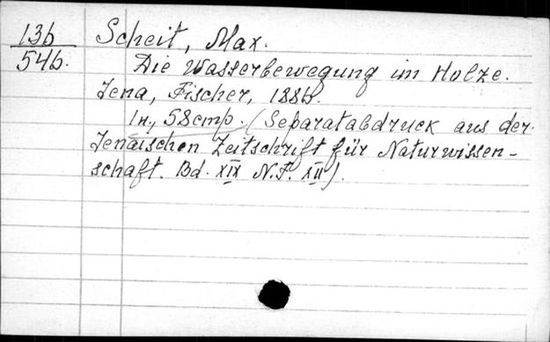 13b Scheit, Max.
54b. Die Wasserbewegung im Holze.
Jena, Fischer, 1886.
1n, 58cmp. (Separatabdruck aus der
Jenaischen Zeitschrift für Naturwissen-
schaft. Bd. XIX N.F. XII).